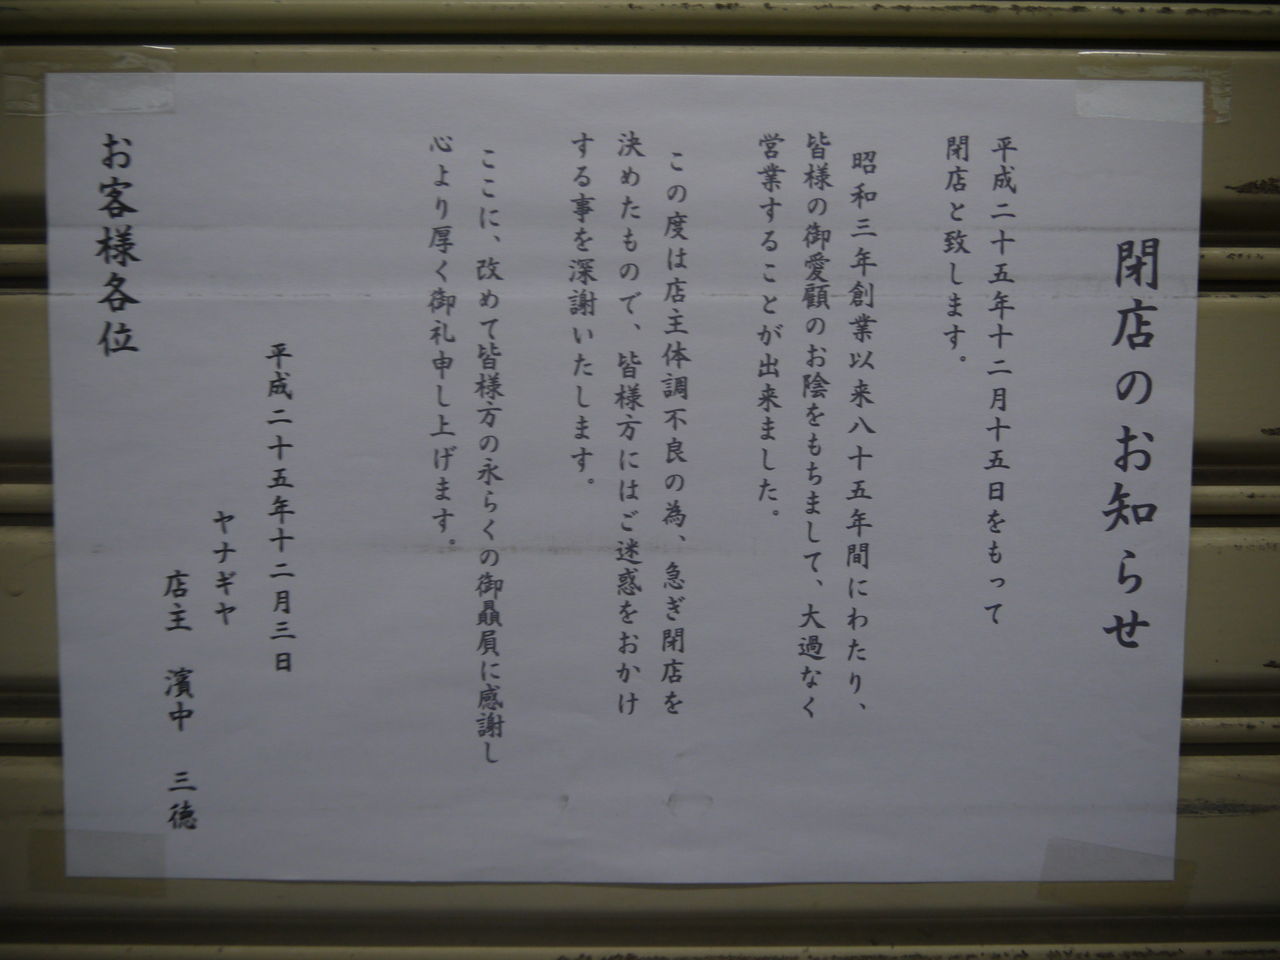 閉店のお知らせ
平成二十五年十二月十五日をもって
閉店と致します。
昭和三年創業以来八十五年間にわたり、
皆様の御愛顧のお陰をもちまして、大過なく
営業することが出来ました。
この度は店主体調不良の為、急ぎ閉店を
決めたもので、皆様方にはご迷惑をおかけ
する事を深謝いたします。
ここに、改めて皆様方の永らくの御贔屓に感謝し
心より厚く御礼申し上げます。
平成二十五年十二月三日
ヤナギヤ
店主　濱中　三徳
お客様各位